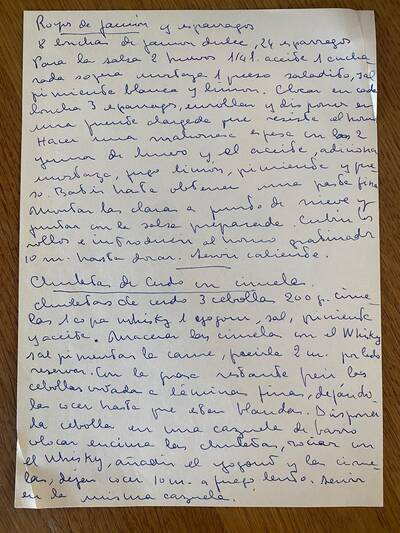 Royos de jamón y esparragos
8 lonchas de jamon dulce, 24 esparragos
Para la salsa 2 huevos 1/4 l. aceite 1 cucha
rada sopera mostaza 1 queso saladito, sal
pimienta blanca y limon. Colocar en cada
loncha 3 esparrags, enrollar y disponer en
una fuente alargada que resista al horno
Hacer una mahonesa espesa con las 2
yemas de huevo y el aceite, adicionar
mostaza, jugo limón, pimienta y que
so. Batir hasta obtener una pasta fina
Montar las claras a punto de nieve y
juntar con la salsa preparada. Cubrir los
rollos e introducir al horno gratinador
10 m. hasta dorar. Servir caliente.
Chuletas de Cerdo con ciruelas.
Chuletas de cerdo 3 cebollas 200 g. cirue
las 1 copa whisky 1 yogourt, sal, pimienta
y aceite. Macerar las ciruelas con el Whisky
sal pimentar la carne, freirla 2 m. por lado
reservar. Con la grasa restante freir las
cebollas cortada a láminas finas, dejándo
las cocer hasta que esten blandas. Disponer
la cebolla en una cazuela de barro
colocar encima las chuletas, rociar con
el Whisky, añadir el yogourt y las cirue
las, dejar cocer 10 m. a fuego lento. Servir
en la misma cazuela.